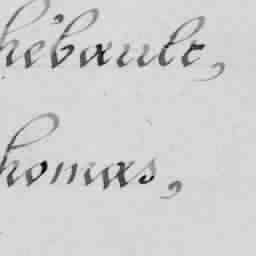 hébault,
homas,